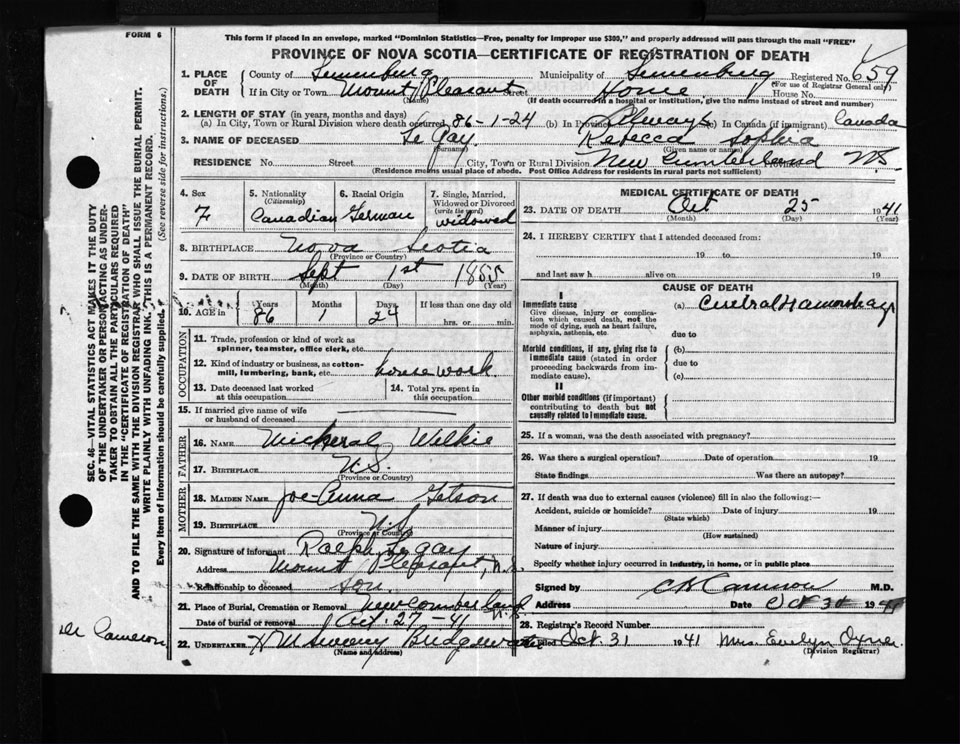 FORM 6
This form if placed in an envelope, marked "Dominion Statistics—Free, penalty for improper use $300," and properly addressed will pass through the mail "FREE"
PROVINCE OF NOVA SCOTIA—CERTIFICATE OF REGISTRATION OF DEATH
1. PLACE OF DEATH County of Lunenburg Municipality of Lunenburg Registered No. 659
(For use of Registrar General only)
If in City or Town Mount Pleasant Street Home House No.
(Name) (If death occurred in a hospital or institution, give the name instead of street and number)
2. LENGTH OF STAY (in years, months and days)
(a) In City, Town or Rural Division where death occurred 86-1-24 (b) In Province Always (c) In Canada (if immigrant) Canada
3. NAME OF DECEASED LeGay Rebecca Sophia
(Surname) (Given name or names)
RESIDENCE No. Street City, Town or Rural Division New Cumberland Province N.S.
(Residence means usual place of abode. Post Office Address for residents in rural parts not sufficient)
4. Sex F
5. Nationality (Citizenship) Canadian
6. Racial Origin German
7. Single, Married, Widowed or Divorced (write the word) widowed
8. BIRTHPLACE Nova Scotia
(Province or Country)
9. DATE OF BIRTH Sept 1st 1855
(Month) (Day) (Year)
10. AGE in Years 86 Months 1 Days 24 If less than one day old hrs. or min.
OCCUPATION
11. Trade, profession or kind of work as spinner, teamster, office clerk, etc.
12. Kind of industry or business, as cotton-mill, lumbering, bank, etc. house work.
13. Date deceased last worked at this occupation
14. Total yrs. spent in this occupation
15. If married give name of wife or husband of deceased
FATHER
16. NAME Mickeral Wilkie
17. BIRTHPLACE N.S.
(Province or Country)
MOTHER
18. MAIDEN NAME Joe-Anna Getson
19. BIRTHPLACE N.S.
(Province or Country)
20. Signature of informant Ralph Legay
Address Mount Pleasant, N.S.
Relationship to deceased son.
21. Place of Burial, Cremation or Removal New Comberland N.S.
Date of burial or removal Oct. 27-41
22. UNDERTAKER Bridgewater
(Name and address)
MEDICAL CERTIFICATE OF DEATH
23. DATE OF DEATH Oct 25 1941
(Month) (Day) (Year)
24. I HEREBY CERTIFY that I attended deceased from:
19 to 19
and last saw h alive on 19
CAUSE OF DEATH
I
Immediate cause (a) Cerebral Haemorhage
Give disease, injury or complication which caused death, not the mode of dying, such as heart failure, asphyxia, asthenia, etc.
due to
Morbid conditions, if any, giving rise to immediate cause (stated in order proceeding backwards from immediate cause).
(b)
due to
(c)
II
Other morbid conditions (if important) contributing to death but not causally related to immediate cause.
25. If a woman, was the death associated with pregnancy?
26. Was there a surgical operation? Date of operation 19
State findings Was there an autopsy?
27. If death was due to external causes (violence) fill in also the following:—
Accident, suicide or homicide? Date of injury 19
(State which)
Manner of injury
(How sustained)
Nature of injury
Specify whether injury occurred in industry, in home, or in public place
Signed by Cameron M.D.
Address Date Oct 30 1941
28. Registrar's Record Number
Filed Oct 31 1941 Mrs. Evelyn Oxner
(Division Registrar)
SEC. 46—VITAL STATISTICS ACT MAKES IT THE DUTY
OF THE UNDERTAKER OR PERSON ACTING AS UNDER-
TAKER TO OBTAIN ALL THE PARTICULARS REQUIRED
IN THE "CERTIFICATE OF REGISTRATION OF DEATH"
AND TO FILE THE SAME WITH THE DIVISION REGISTRAR WHO SHALL ISSUE THE BURIAL PERMIT.
WRITE PLAINLY WITH UNFADING INK. THIS IS A PERMANENT RECORD.
Every item of Information should be carefully supplied. (See reverse side for instructions.)
Dr Cameron